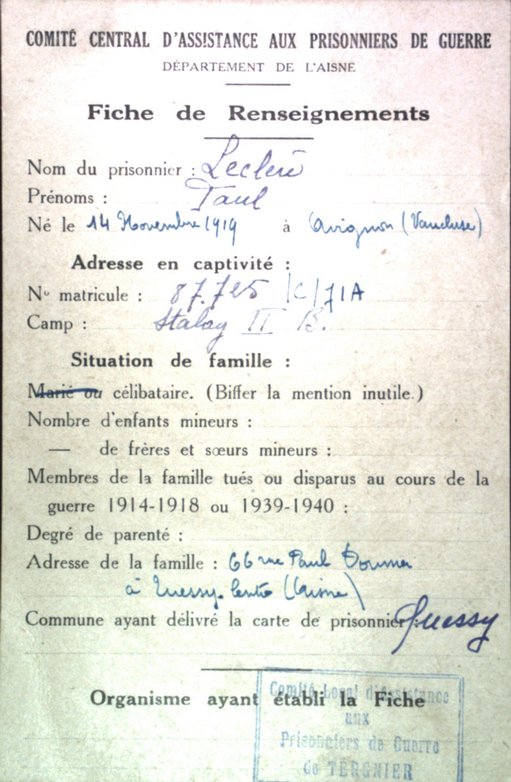 COMITÉ CENTRAL D'ASSISTANCE AUX PRISONNIERS DE GUERRE
DÉPARTEMENT DE L'AISNE
Fiche de Renseignements
Nom du prisonnier : Leclerc
Prénoms : Paul
Né le 14 Novembre 1919 à Avignon (Vaucluse)
Adresse en captivité :
No matricule : 87.725 /C/71A
Camp : Stalag II B.
Situation de famille :
Marié ou célibataire. (Biffer la mention inutile.)
Nombre d'enfants mineurs :
— de frères et sœurs mineurs :
Membres de la famille tués ou disparus au cours de la
guerre 1914-1918 ou 1939-1940 :
Degré de parenté :
Adresse de la famille : 66 rue Paul Doumer
à Quessy-Centre (Aisne)
Commune ayant délivré la carte de prisonnier : Quessy
Organisme ayant établi la Fiche
Comité Local d'Assistance
aux
Prisonniers de Guerre
de TERGNIER